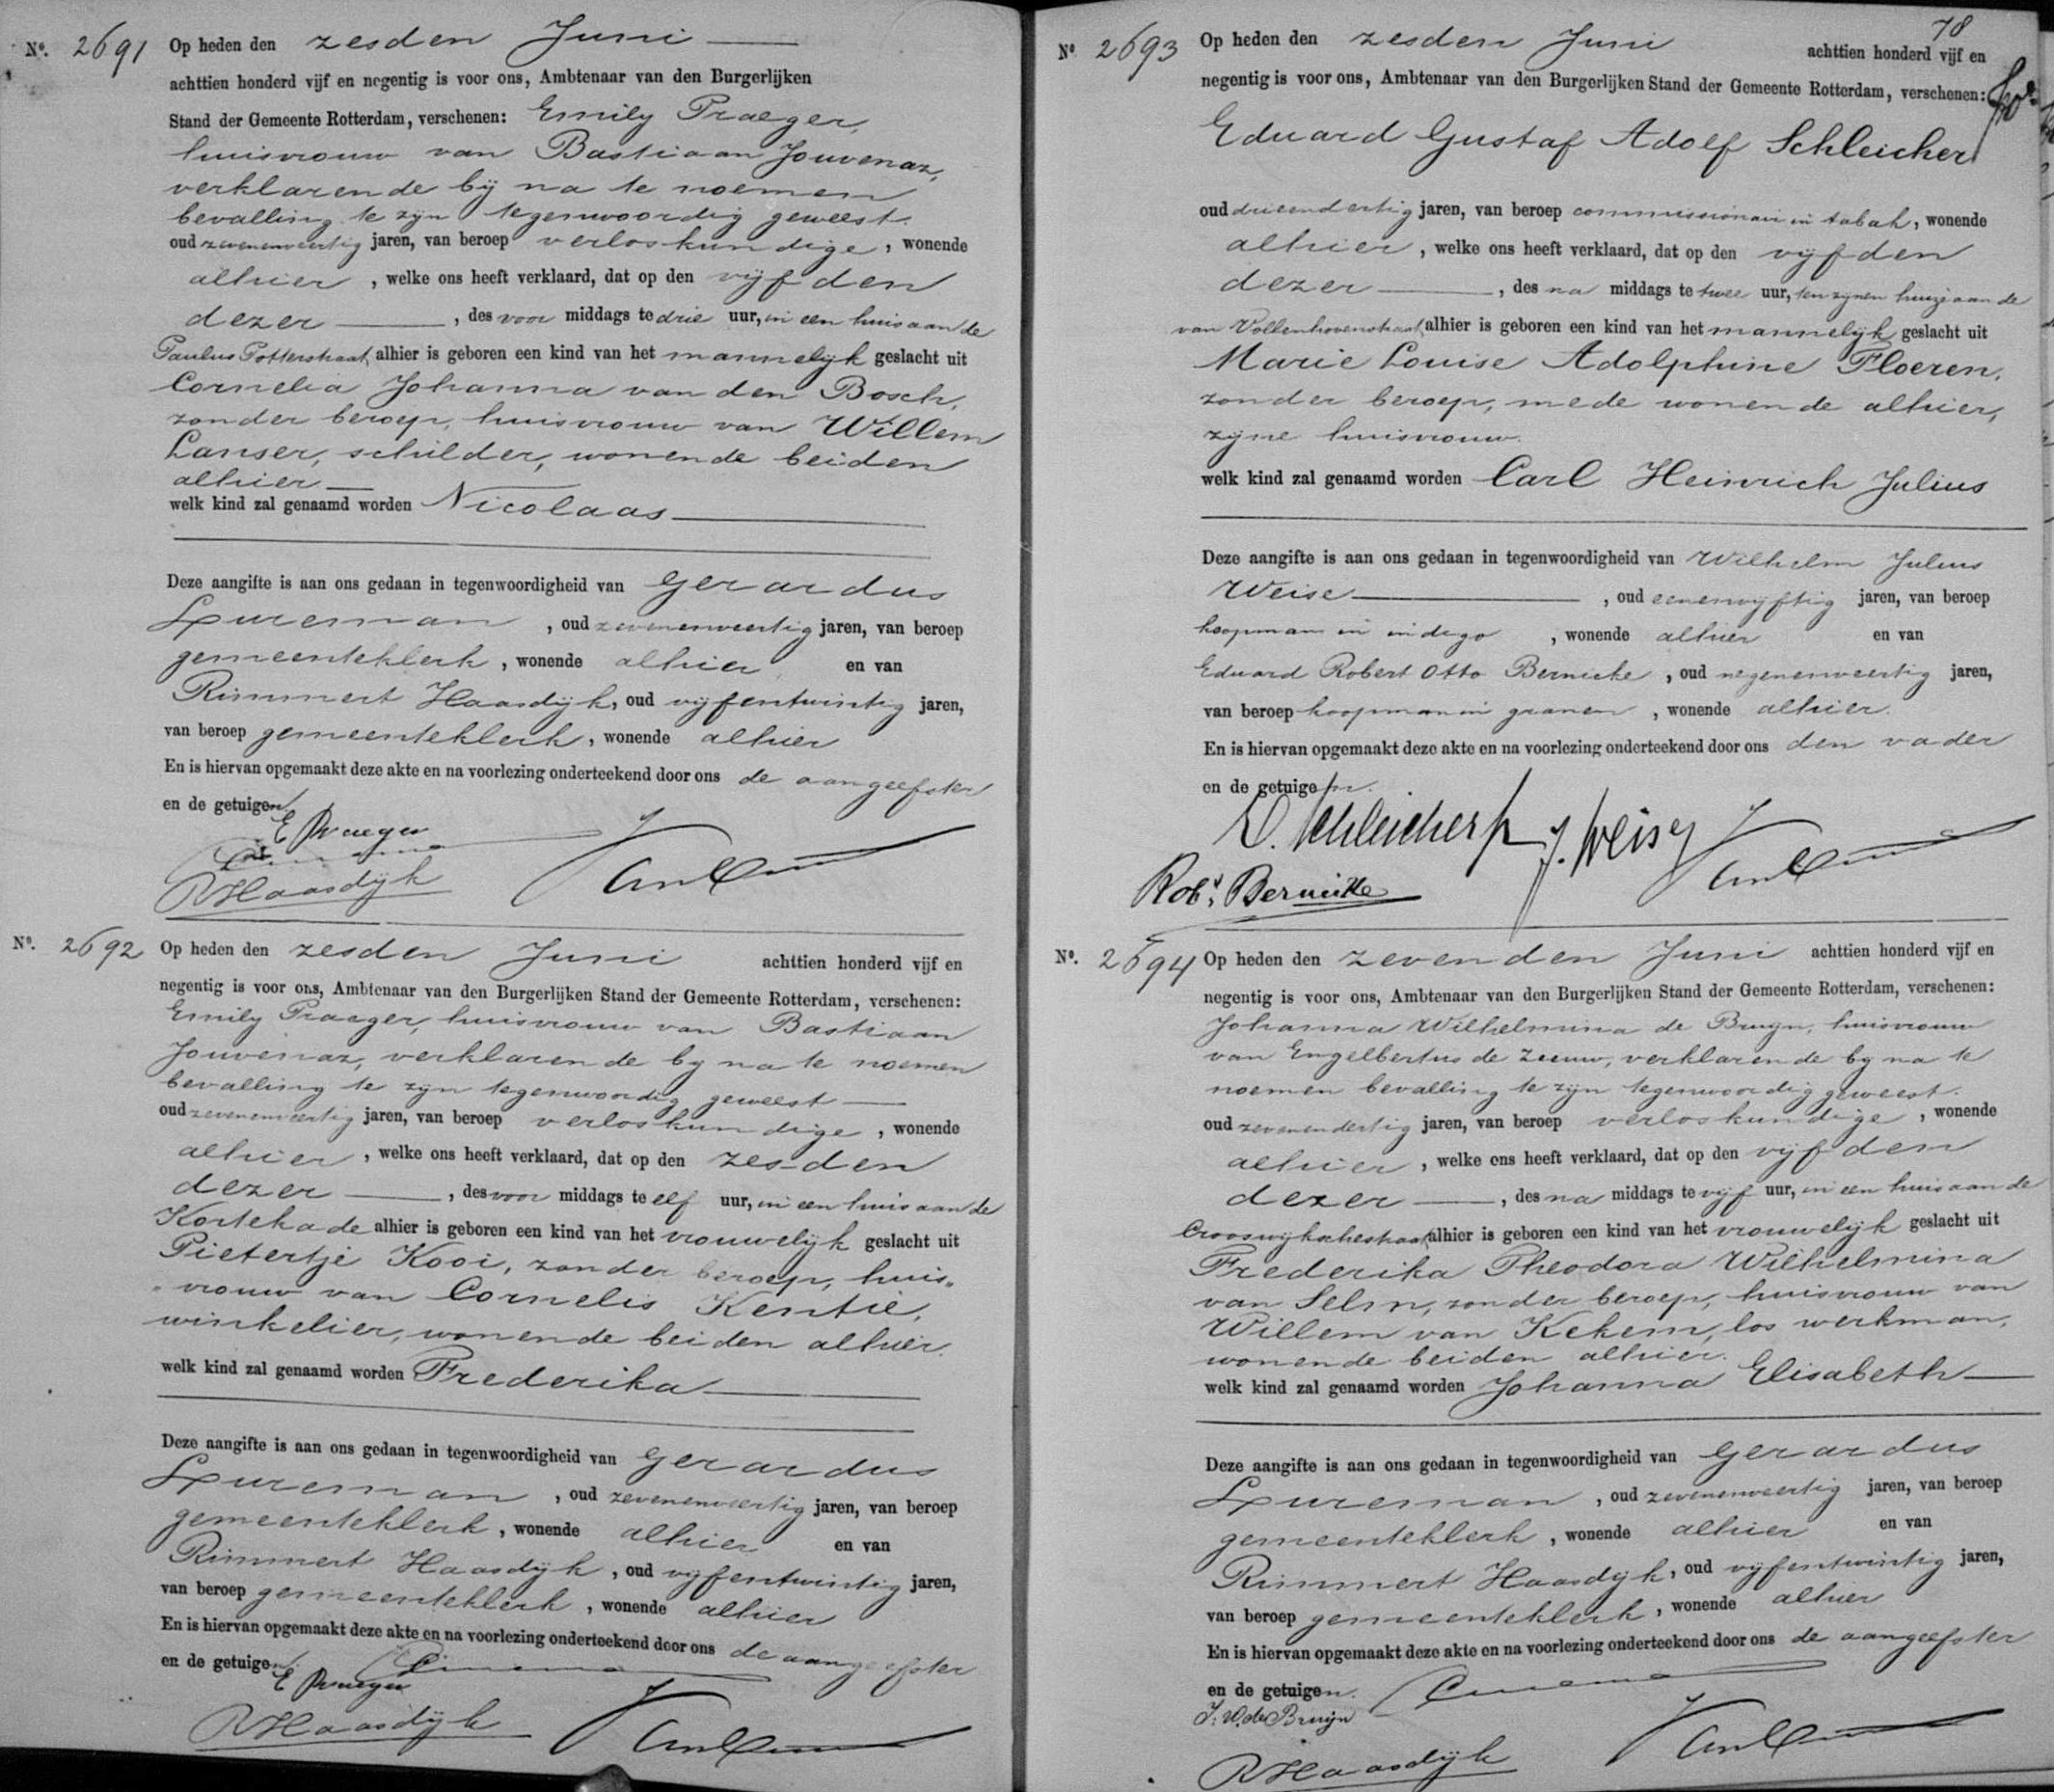 Nº. 2691 Op heden den zesden Juni
achttien honderd vijf en negentig is voor ons, Ambtenaar van den Burgerlijken
Stand der Gemeente Rotterdam, verschenen: Emily Praeger,
huisvrouw van Bastiaan Jouvenaz,
verklarende bij na te noemen
bevalling te zijn tegenwoordig geweest.
oud zevenenveertig jaren, van beroep verloskundige, wonende
alhier, welke ons heeft verklaard, dat op den vijfden
dezer, des voor middags te drie uur, in een huis aan de
Paulus Potterstraat alhier is geboren een kind van het mannelijk geslacht uit
Cornelia Johanna van den Bosch,
zonder beroep, huisvrouw van Willem
Lanser, schilder, wonende beiden
alhier
welk kind zal genaamd worden Nicolaas
Deze aangifte is aan ons gedaan in tegenwoordigheid van Gerardus
Lureman, oud zevenenveertig jaren, van beroep
gemeenteklerk, wonende alhier en van
Rimmert Haasdijk, oud vijfentwintig jaren,
van beroep gemeenteklerk, wonende alhier
En is hiervan opgemaakt deze akte en na voorlezing onderteekend door ons de aangeefster
en de getuigen.
E Praeger
RHaasdijk
Nº. 2692 Op heden den zesden Juni achttien honderd vijf en
negentig is voor ons, Ambtenaar van den Burgerlijken Stand der Gemeente Rotterdam, verschenen:
Emily Praeger, huisvrouw van Bastiaan
Jouvenaz, verklarende by na te noemen
bevalling te zijn tegenwoordig geweest
oud zevenenveertig jaren, van beroep verloskundige, wonende
alhier, welke ons heeft verklaard, dat op den zesden
dezer, des voor middags te elf uur, in een huis aan de
Kortekade alhier is geboren een kind van het vrouwelijk geslacht uit
Pietertje Kooi, zonder beroep, huis-
vrouw van Cornelis Kentie,
winkelier, wonende beiden alhier.
welk kind zal genaamd worden Frederika
Deze aangifte is aan ons gedaan in tegenwoordigheid van Gerardus
Lureman, oud zevenenveertig jaren, van beroep
gemeenteklerk, wonende alhier en van
Rimmert Haasdijk, oud vijfentwintig jaren,
van beroep gemeenteklerk, wonende alhier
En is hiervan opgemaakt deze akte en na voorlezing onderteekend door ons de aangeefster
en de getuigen.
E Praeger
RHaasdijk
78
Nº 2693 Op heden den zesden Juni achttien honderd vijf en
negentig is voor ons, Ambtenaar van den Burgerlijken Stand der Gemeente Rotterdam, verschenen:
Eduard Gustaf Adolf Schleicher
oud drieendertig jaren, van beroep commissionair in tabak, wonende
alhier, welke ons heeft verklaard, dat op den vijfden
dezer, des na middags te twee uur, ten zijnen huize aan de
van Vollenhovenstraat alhier is geboren een kind van het mannelijk geslacht uit
Marie Louise Adolphine Floeren,
zonder beroep, mede wonende alhier,
zijne huisvrouw.
welk kind zal genaamd worden Carl Heinrich Julius
Deze aangifte is aan ons gedaan in tegenwoordigheid van Wilhelm Julius
Weise, oud eenenvijftig jaren, van beroep
koopman in indigo, wonende alhier en van
Eduard Robert Otto Bernicke, oud negenenveertig jaren,
van beroep koopman in granen, wonende alhier.
En is hiervan opgemaakt deze akte en na voorlezing onderteekend door ons den vader
en de getuigen.
E. Schleicher J. Weise
Robt. Bernicke
Nº. 2694 Op heden den zevenden Juni achttien honderd vijf en
negentig is voor ons, Ambtenaar van den Burgerlijken Stand der Gemeente Rotterdam, verschenen:
Johanna Wilhelmina de Bruijn, huisvrouw
van Engelbertus de Zeeuw, verklarende by na te
noemen bevalling te zijn tegenwoordig geweest.
oud zevenendertig jaren, van beroep verloskundige, wonende
alhier, welke ons heeft verklaard, dat op den vijfden
dezer, des na middags te vijf uur, in een huis aan de
Crooswijkschestraat alhier is geboren een kind van het vrouwelijk geslacht uit
Frederika Theodora Wilhelmina
van Selm, zonder beroep, huisvrouw van
Willem van Kekem, los werkman,
wonende beiden alhier.
welk kind zal genaamd worden Johanna Elisabeth
Deze aangifte is aan ons gedaan in tegenwoordigheid van Gerardus
Lureman, oud zevenenveertig jaren, van beroep
gemeenteklerk, wonende alhier en van
Rimmert Haasdijk, oud vijfentwintig jaren,
van beroep gemeenteklerk, wonende alhier
En is hiervan opgemaakt deze akte en na voorlezing onderteekend door ons de aangeefster
en de getuigen.
J. W. de Bruijn
RHaasdijk